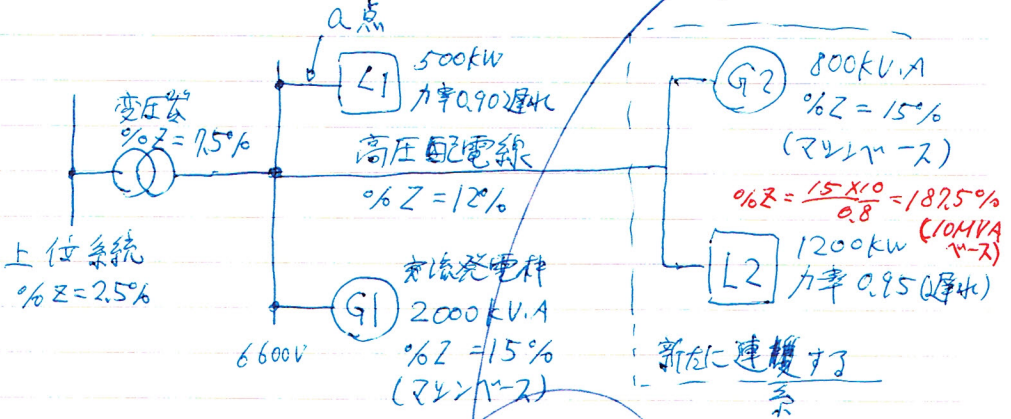 a点
L1
500KW
力率0.90遅れ
変圧器
%Z=7.5%
高圧配電線
%Z=12%
上位系統
%Z=2.5%
6600V
G1
交流発電枠
2000KV.A
%Z=15%
(マシンベース)
G2
800KV.A
%Z=15%
(マシンベース)
%Z=15×10/0.8=187.5%
(10MVA
ベース)
L2
1200KW
力率0.95(遅れ)
新たに連繋する
系